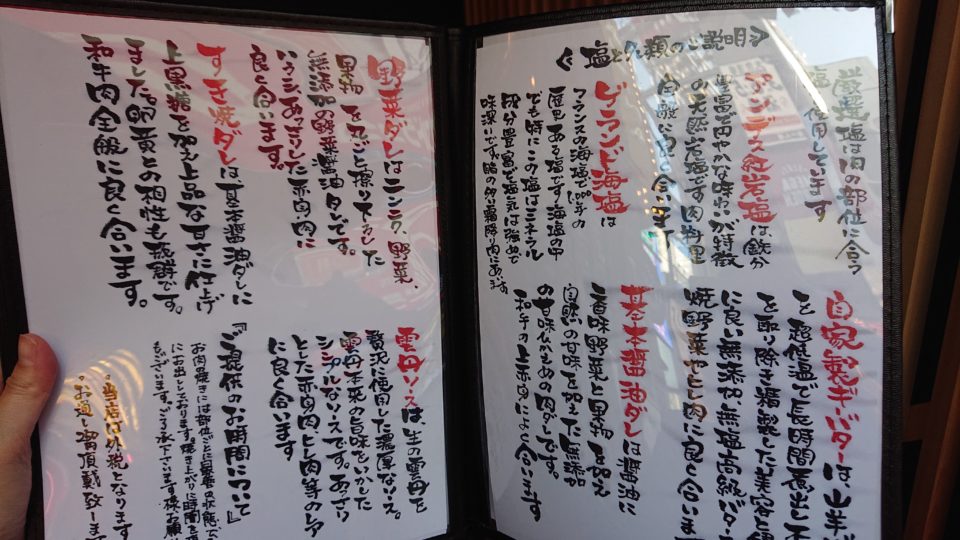 《塩とタレ類のご説明》
厳選塩は肉の部位に合う
使用しています
アンデス紅岩塩は鉄分
豊富で円やかな味わいが特徴
の天然岩塩です。肉料理
全般に良く合います
ゲランド海塩は
フランスの海塩で
歴史ある塩です。海塩の中
でも特にこの塩はミネラル
成分豊富で塩気は強めで
味深いです。脂の多い霜降り肉にあいます
自家製ギーバターは、山羊
を超低温で長時間煮出し不
を取り除き精製した美容と健
に良い無添加無塩高級バター
焼野菜やヒレ肉に良く合いま
基本醤油ダレは醤油に
香味野菜と果物を加え
自然の甘味を加えた無添加
の甘味ひかえめの肉ダレです。
和牛の上赤身によく合います
野菜ダレはニンニク、野菜、
果物を丸ごと擦り下ろした
無添加の野菜醤油タレです。
あっさりした赤肉に
良く合います。
すき焼ダレは基本醤油ダレに
上黒糖を加え上品な甘さに仕上げ
ました。卵黄との相性も抜群です。
和牛肉全般に良く合います。
雲丹ソースは、生の雲丹を
贅沢に使用した濃厚なソース。
雲丹本来の旨味をいかした
シンプルなソースです。あっさり
とした赤肉ヒレ肉等のレア
に良く合います
『ご提供のお時間について』
お肉の焼きには部位ごとに最善の状態で
にお出ししております。焼き上がりに時間を頂
もございます。ご了承下さいます様お願
。当店は外税となります
。お通し賃頂戴致しま